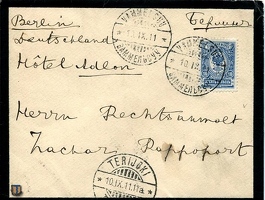 Berlin Берлин
Deutschland
Hôtel Adlon
Herrn Rechtsanwalt
Zachari Rappoport
TERIJOKI
10.IX.11.11a